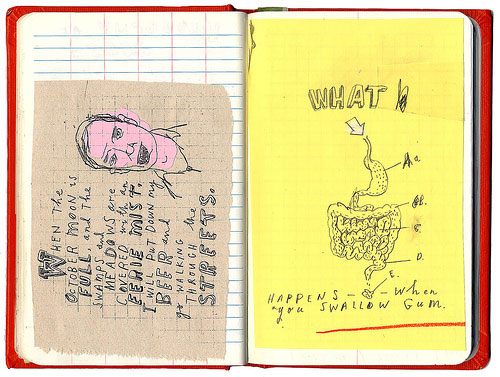 WHEN THE
OCTOBER MOON is
FULL and the
and
MEADOWS are
COVERED with an
EERIE MIST.
I WILL PUT DOWN my
BEER and
go WALKING
THROUGH the
STREETS.
WHAT h
A.a.
B.
C.
D.
E.
HAPPENS - - When
you SWALLOW GUM.